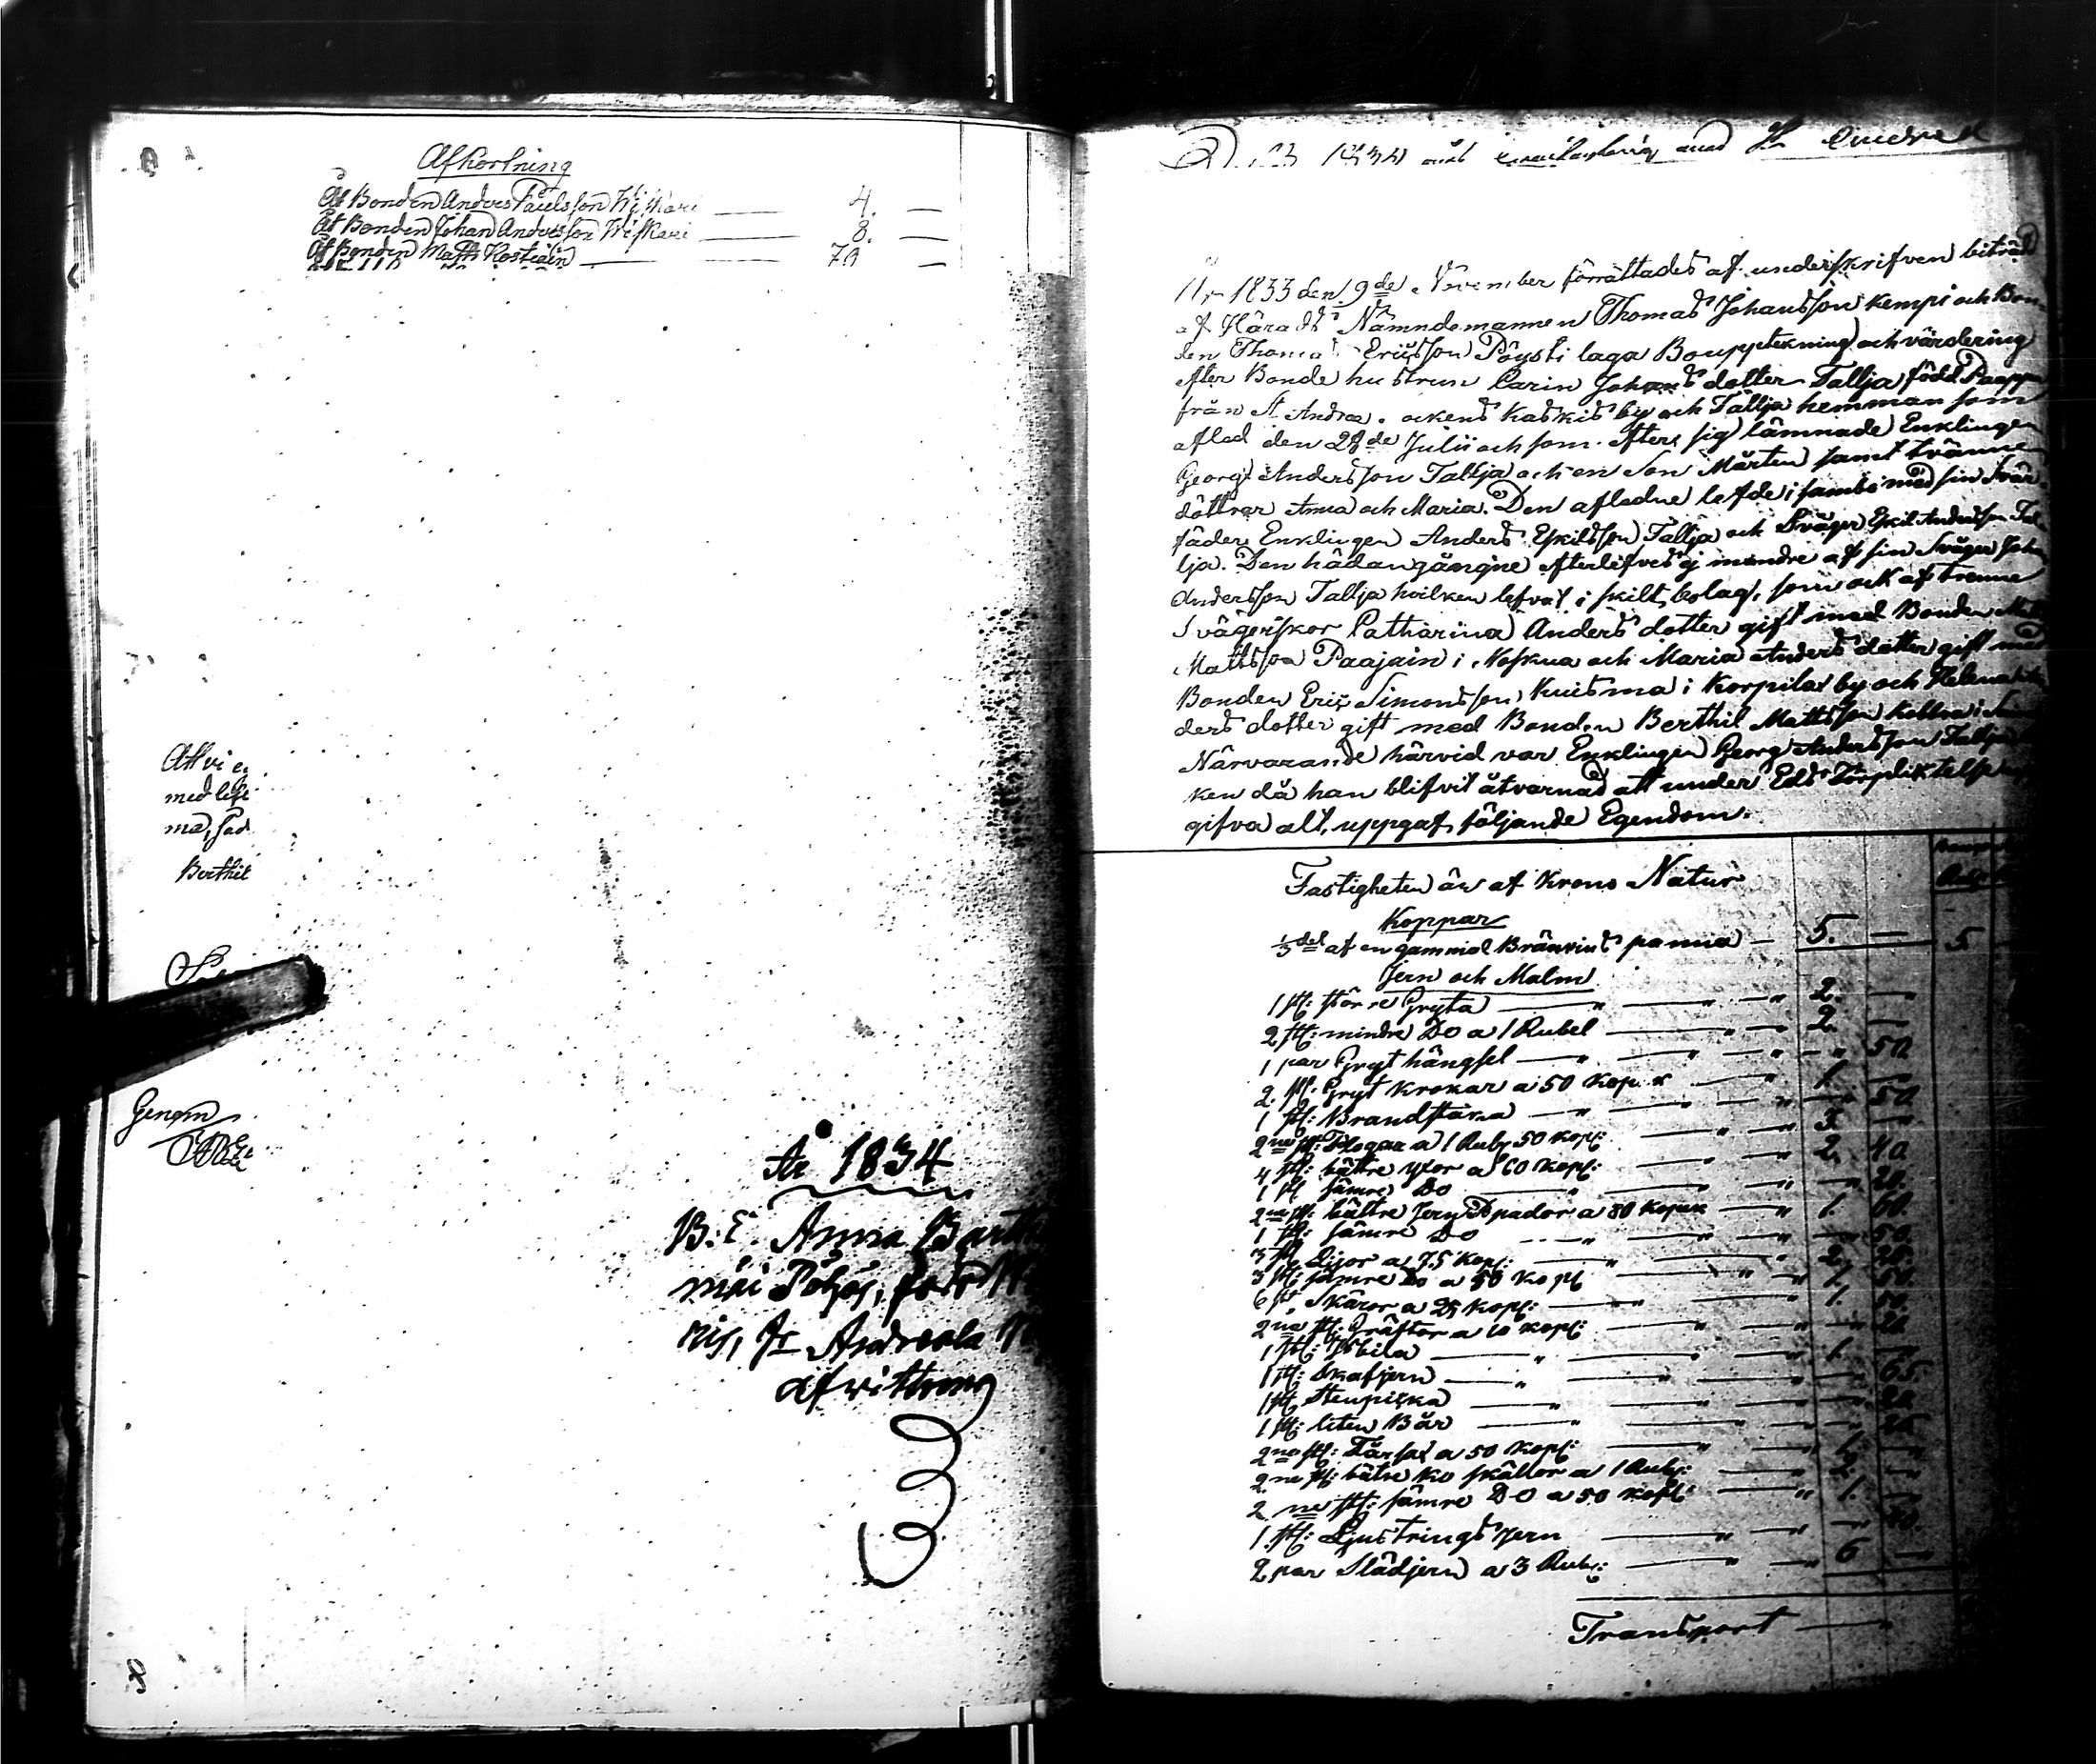 Afkortning
Åt Bonden Anders Påulsson Wiskari 4. —
Åt Bonden Johan Andersson Wiskari 8. —
Åt Bonden Matts Kostiain 70 —
Att vi e.
med lefe
ma, sad
Berthil
Genom
År 1834
B: E. Anna Barth
mii Pohjoj, född
ris, Sr Andreala
afvittring
8
1834
År 1833 den 9de November förrättades af underskrifven biträdd
af Härads Nämndemannen Thomas Johansson Kempi och Bon-
den Thomas Ericsson Pöysti laga Bouppteckning och värdering
efter Bonde hustrun Carin Johans dotter Tallja född Paappa
från St Andrea sockens Kaskis by och Tallja hemman som
afled den 28de Julii och som efter sig lämnade Enklingen
Georg Andersson Tallja och en Son Mårten samt tvänne
döttrar Anna och Maria. Den aflednе lefde i sambo med sin Svär-
fader Enklingen Anders Eskilsson Tallja och Svåger Eskil Andersson Tal
lja. Den hädangångne efterlefves ej mindre af sin Svåger Joh
Andersson Tallja hvilken lefvat i skilt bolag, som ock af trenne
Svägerskor Catharina Anders dotter gift med Bonden
Mattsson Paajain i Noskua och Maria Anders dotter gift med
Bonden Eric Simonsson Kuisma i Korpilax by och Helena An
ders dotter gift med Bonden Berthil Mattsson
Närvarande härvid var Enklingen Georg Andersson Tallja
ken då han blifvit åtvarnad att under Eds förpliktelse
gifva alt, uppgaf följande Egendom.
Fastigheten är af Krono Natur
Koppar
1/3 del af en gammal Bränvins panna — 5. — 5
Jern och Malm
1 st: större Gryta 2. —
2 st: mindre Do a 1 Rubel 2 —
1 par Gryt hängsel 50
2 st: Gryt krokar a 50 Kop 1 —
1 st: Brandstära 50
2ne st: Plogar a 1 Rub 50 kop: 3 —
4 st: bättre yxor a 60 kop: 2. 40
1 st sämre Do 20.
2ne st: bättre Jern Spador a 80 Kopek 1. 60.
1 st: sämre Do 50.
3 st Lijor a 75 Kop: 2. 25.
3 st: sämre Do a 50 kop 1. 50.
6 st, Skäror a 25 kop: 1. 50.
2ne st: Gräftor a 10 kop: 20
1 st: Isbila 1 —
1 st: Skafjern 65.
1 st Stenpicka
1 st: liten Bår 25
2ne st: Tärfsel a 50 kop: 1 —
2ne st: bätre ko skällor a 1 Rub: 2 —
2 ne st: sämre Do a 50 kop: 1 —
1 st: Ljustrings Jern
2 par Slädjern a 3 Rub: 6 —
Transport